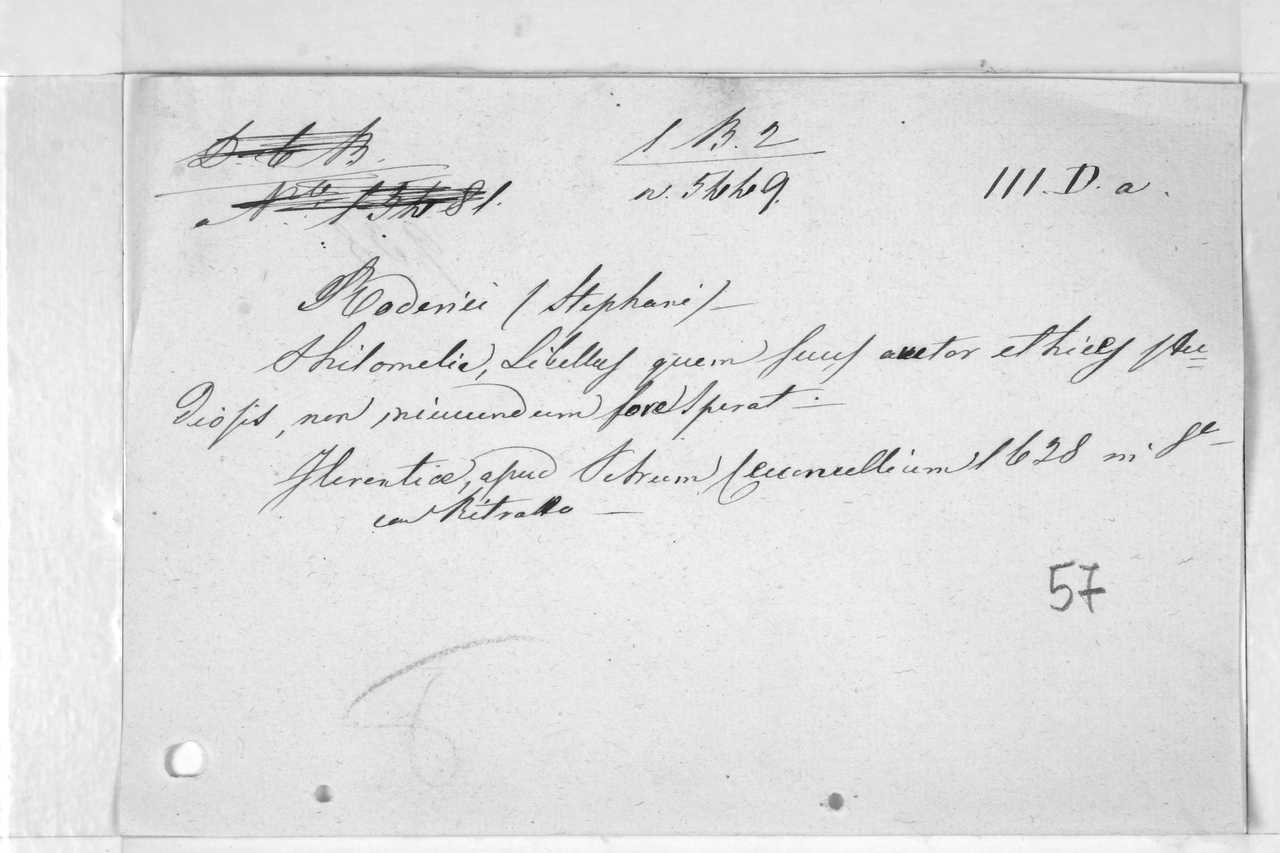 D. 6 B.
N.º 15681.
1 B. 2
n. 5669.
III. D. a.
Roderici (Stephani) —
Philomelia, Libellus quem suus auctor ethices stu=
diosis, non iniucundum fore sperat. —
Florentiae, apud Petrum Ceconcellium 1628 in 8º —
con Ritratto —
57